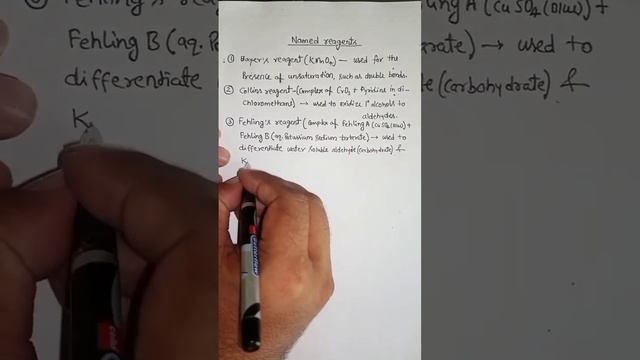 Named reagents
① Bayer's reagent (KMnO4) — used for the
Presence of unsaturation, such as double bonds.
② Collins reagent - Complex of CrO3 + Pyridine in di-
chloromethane) → used to oxidize 1° alcohols to
aldehydes.
③ Fehling's reagent (Complex of Fehling A (CuSO4 (blue) +
Fehling B (aq. Potassium Sodium tartarate) → used to
differentiate water soluble aldehyde (carbohydrate) &
K